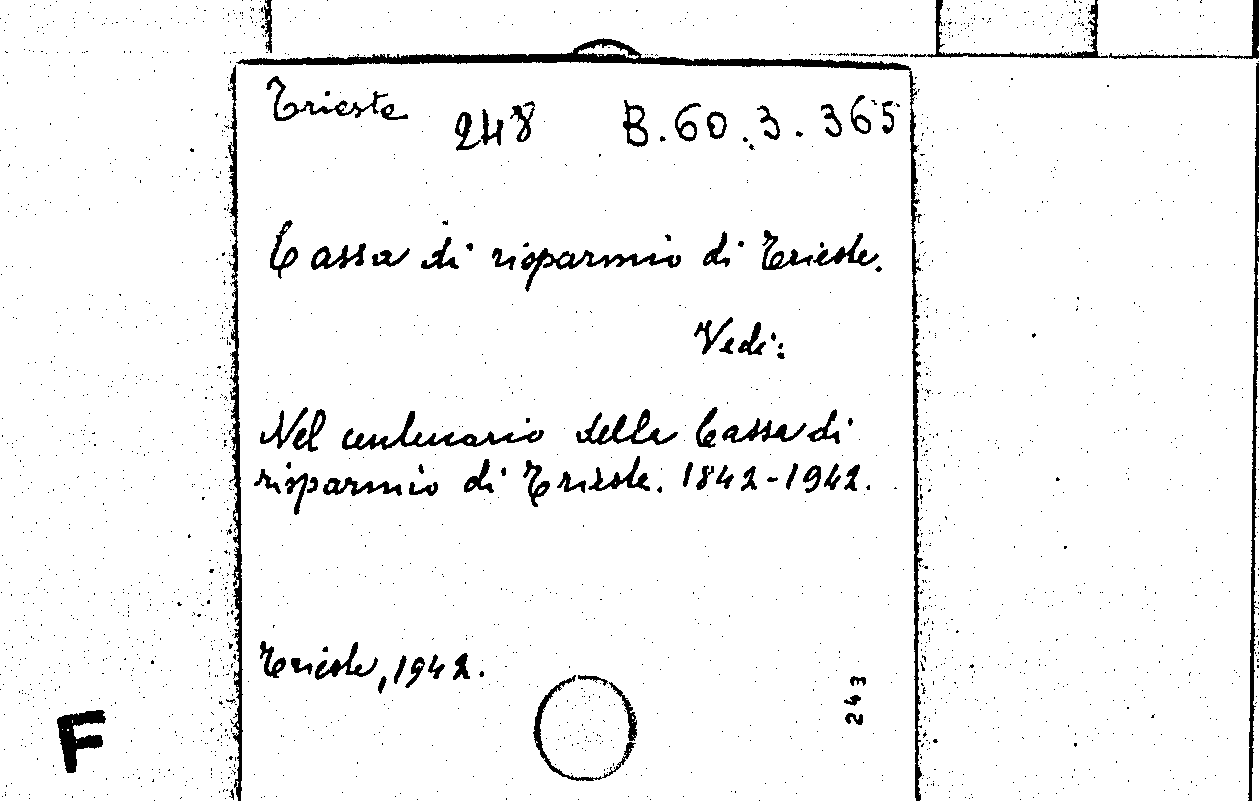 Trieste 248 B.60.3.365
Cassa di risparmio di Trieste.
Vedi:
Nel centenario della Cassa di
risparmio di Trieste. 1842-1942.
Trieste, 1942.
243
F